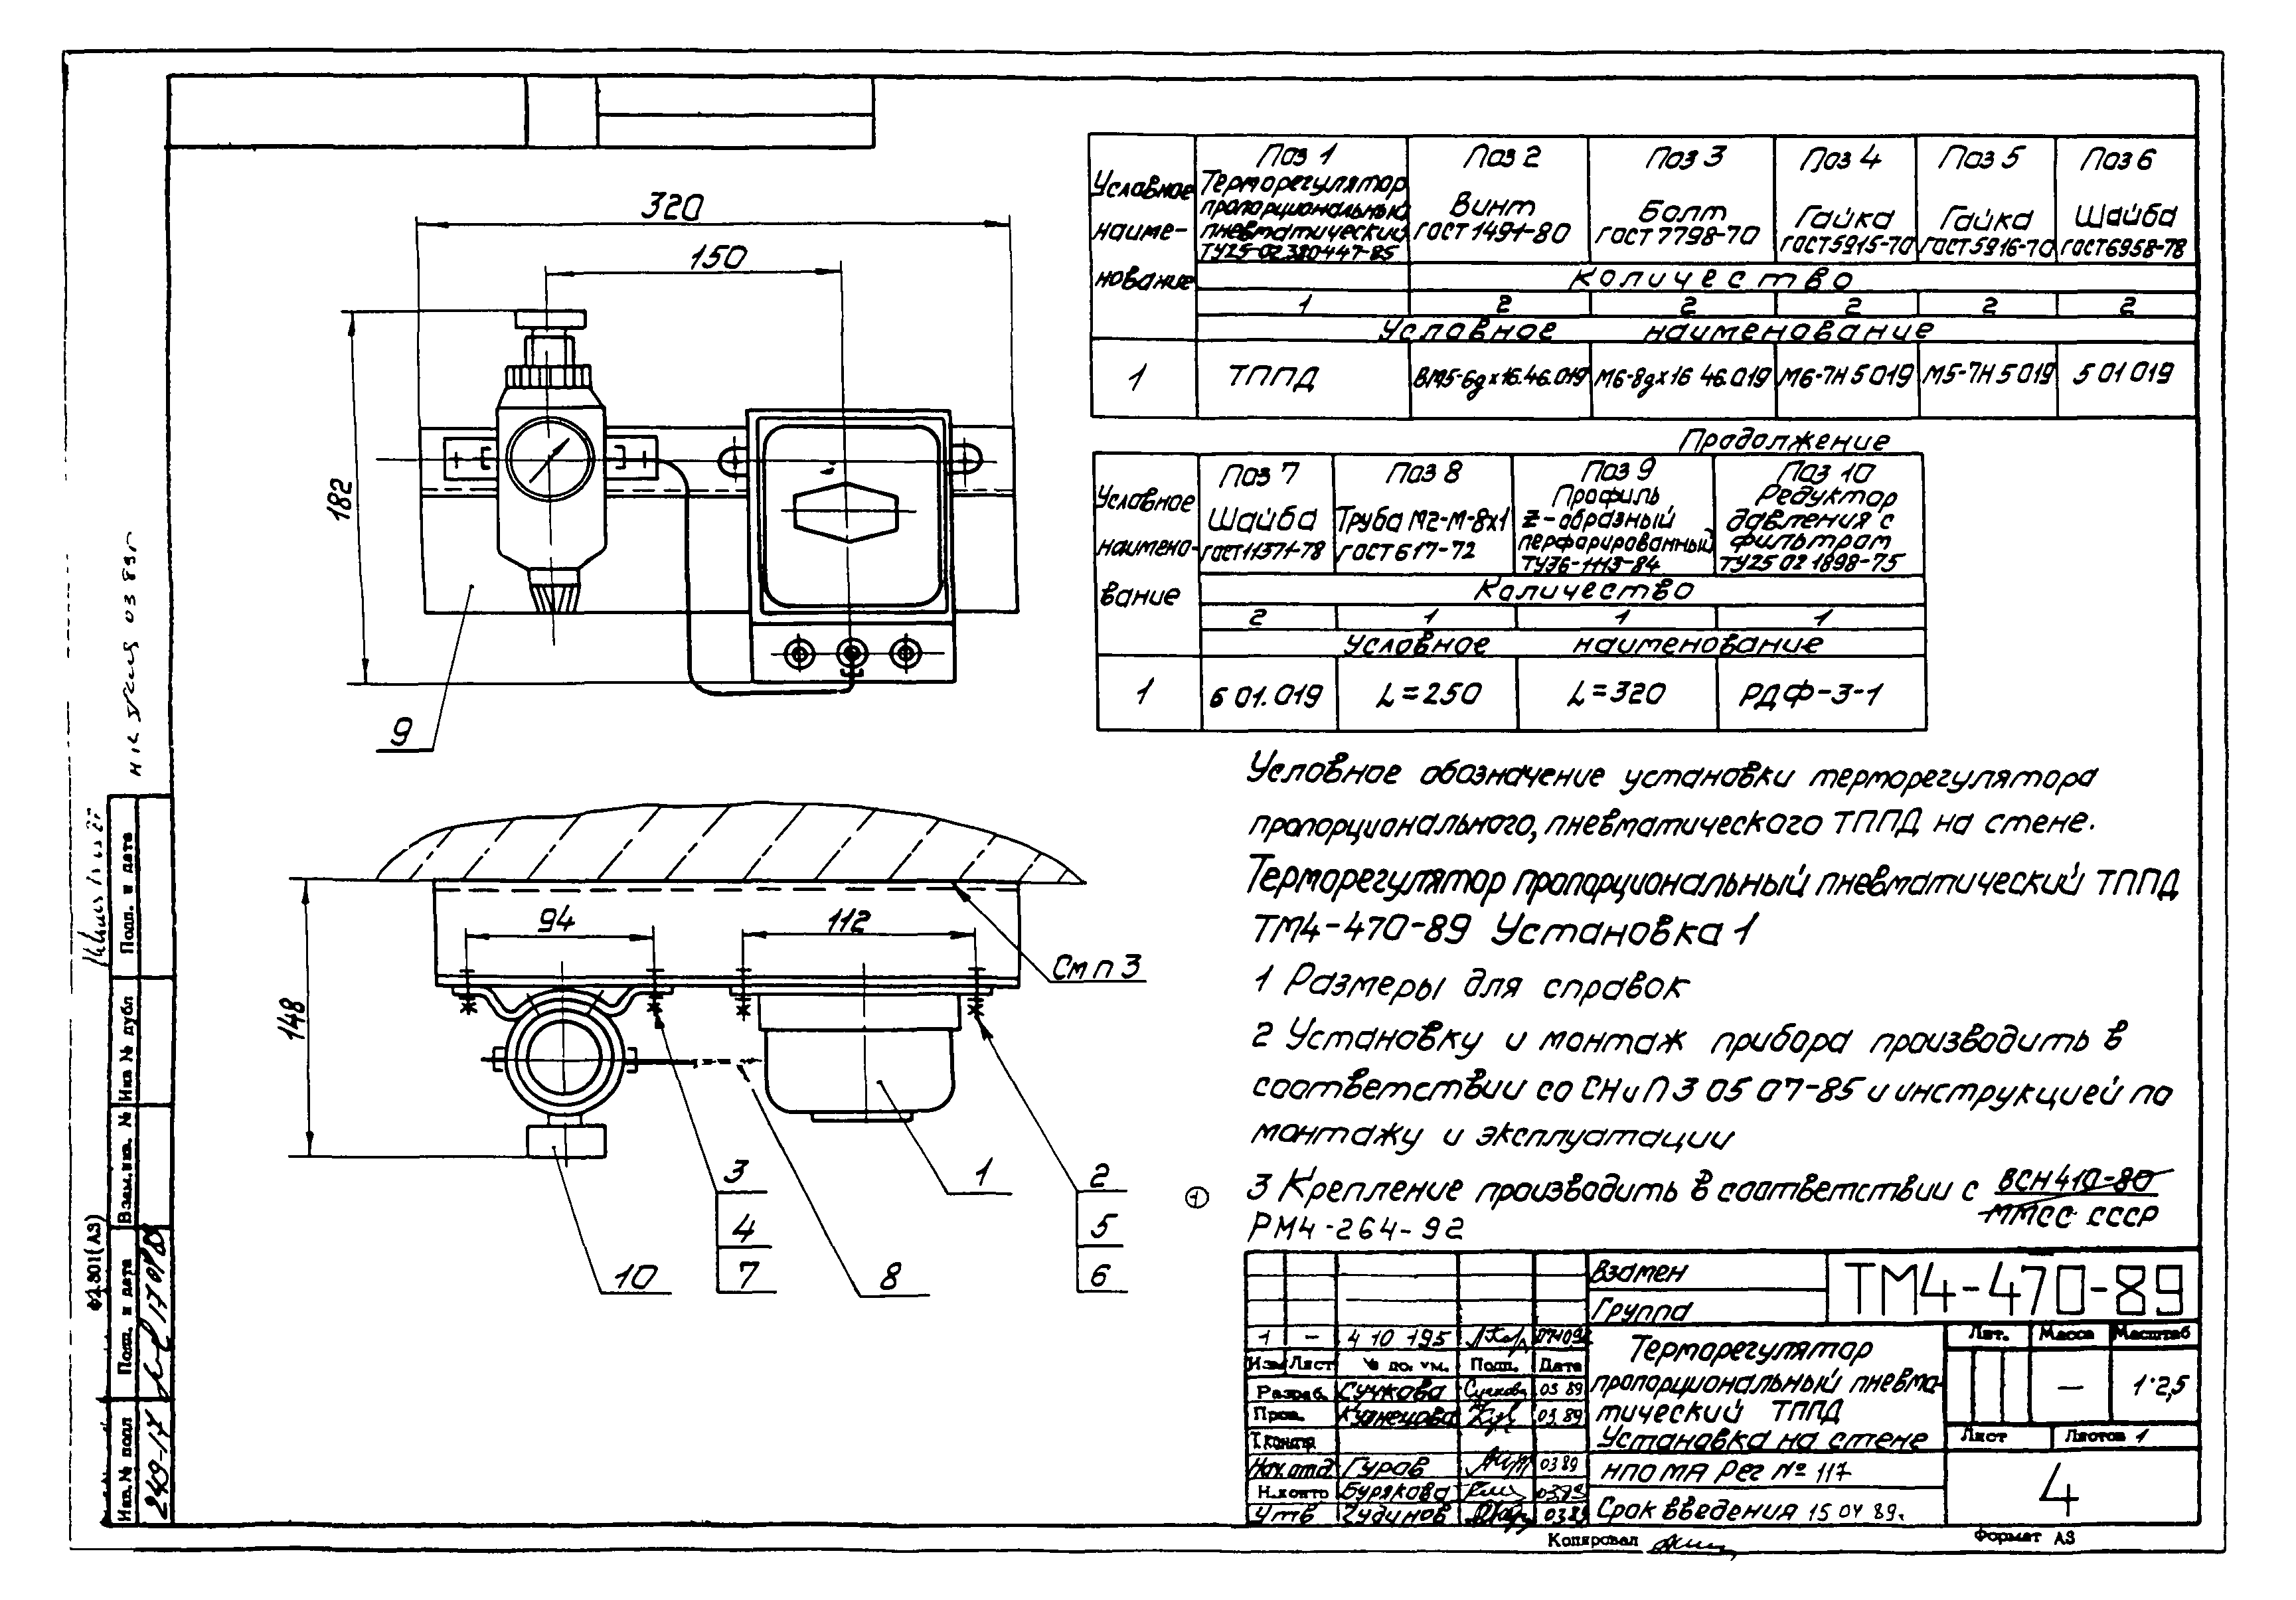 320
150
182
9
94
112
148
См п 3
3
4
7
8
1
2
5
6
10
Условное
наиме-
нование
Поз 1
Терморегулятор
пропорциональный
пневматический
ТУ25-02.380447-85
Поз 2
Винт
ГОСТ 1491-80
Поз 3
Болт
ГОСТ 7798-70
Поз 4
Гайка
ГОСТ5915-70
Поз 5
Гайка
ГОСТ5916-70
Поз 6
Шайба
ГОСТ6958-78
Количество
1 2 2 2 2 2
Условное наименование
1 ТППД ВМ5-6gх16.46.019 М6-8gх16 46.019 М6-7Н 5 019 М5-7Н 5 019 5 01 019
Продолжение
Условное
наимено-
вание
Поз 7
Шайба
ГОСТ11371-78
Поз 8
Труба М2-М-8х1
ГОСТ 617-72
Поз 9
Профиль
Z-образный
перфарированный
ТУ36-1113-84
Поз 10
Редуктор
давления с
фильтром
ТУ25 02 1898-75
Количество
2 1 1 1
Условное наименование
1 6 01.019 L=250 L=320 РДФ-3-1
Условное обозначение установки терморегулятора
пропорционального, пневматического ТППД на стене.
Терморегулятор пропорциональный пневматический ТППД
ТМ4-470-89 Установка 1
1 Размеры для справок
2 Установку и монтаж прибора производить в
соответствии со СНиП 3 05 07-85 и инструкцией по
монтажу и эксплуатации
① 3 Крепление производить в соответствии с ВСН 410-80
ММСС СССР
РМ4-264-92
Взамен
Группа
ТМ4-470-89
1 – 4 10 195
Изм Лист № до. ум. Подп. Дата
Разраб. Сучкова 03 89
Пров. Кузнецова 03.89
Т.контр
Нач.отд Гуров 03 89
Н.контр Бурякова 03 89
Утв Чудинов 03 89
Терморегулятор
пропорциональный пневма-
тический ТППД
Установка на стене
Лит. Масса Масштаб
– 1:2,5
Лист Листов 1
НПО МА Рег № 117
Срок введения 15 04 89г.
4
Копировал
Формат А3
Ф2.301(А3)
Подп. и дата
Инв № дубл
Взам.инв. №
Подп. и дата
Инв.№ подл
249-14